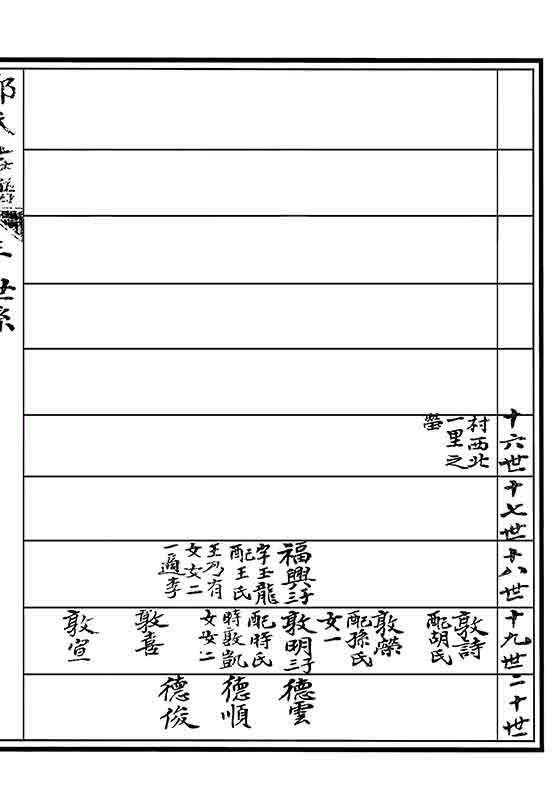 十六世
村西北
一里之
塋
十七世
十八世
福興三子
字玉龍
配王氏
王乃有
女女二
一適李
十九世
敦詩
配胡氏
敦榮
配孫氏
女一
敦明三子
配時氏
時敦凱
女女二
敦喜
敦宣
二十世
德雲
德順
德俊
氏
三
世系